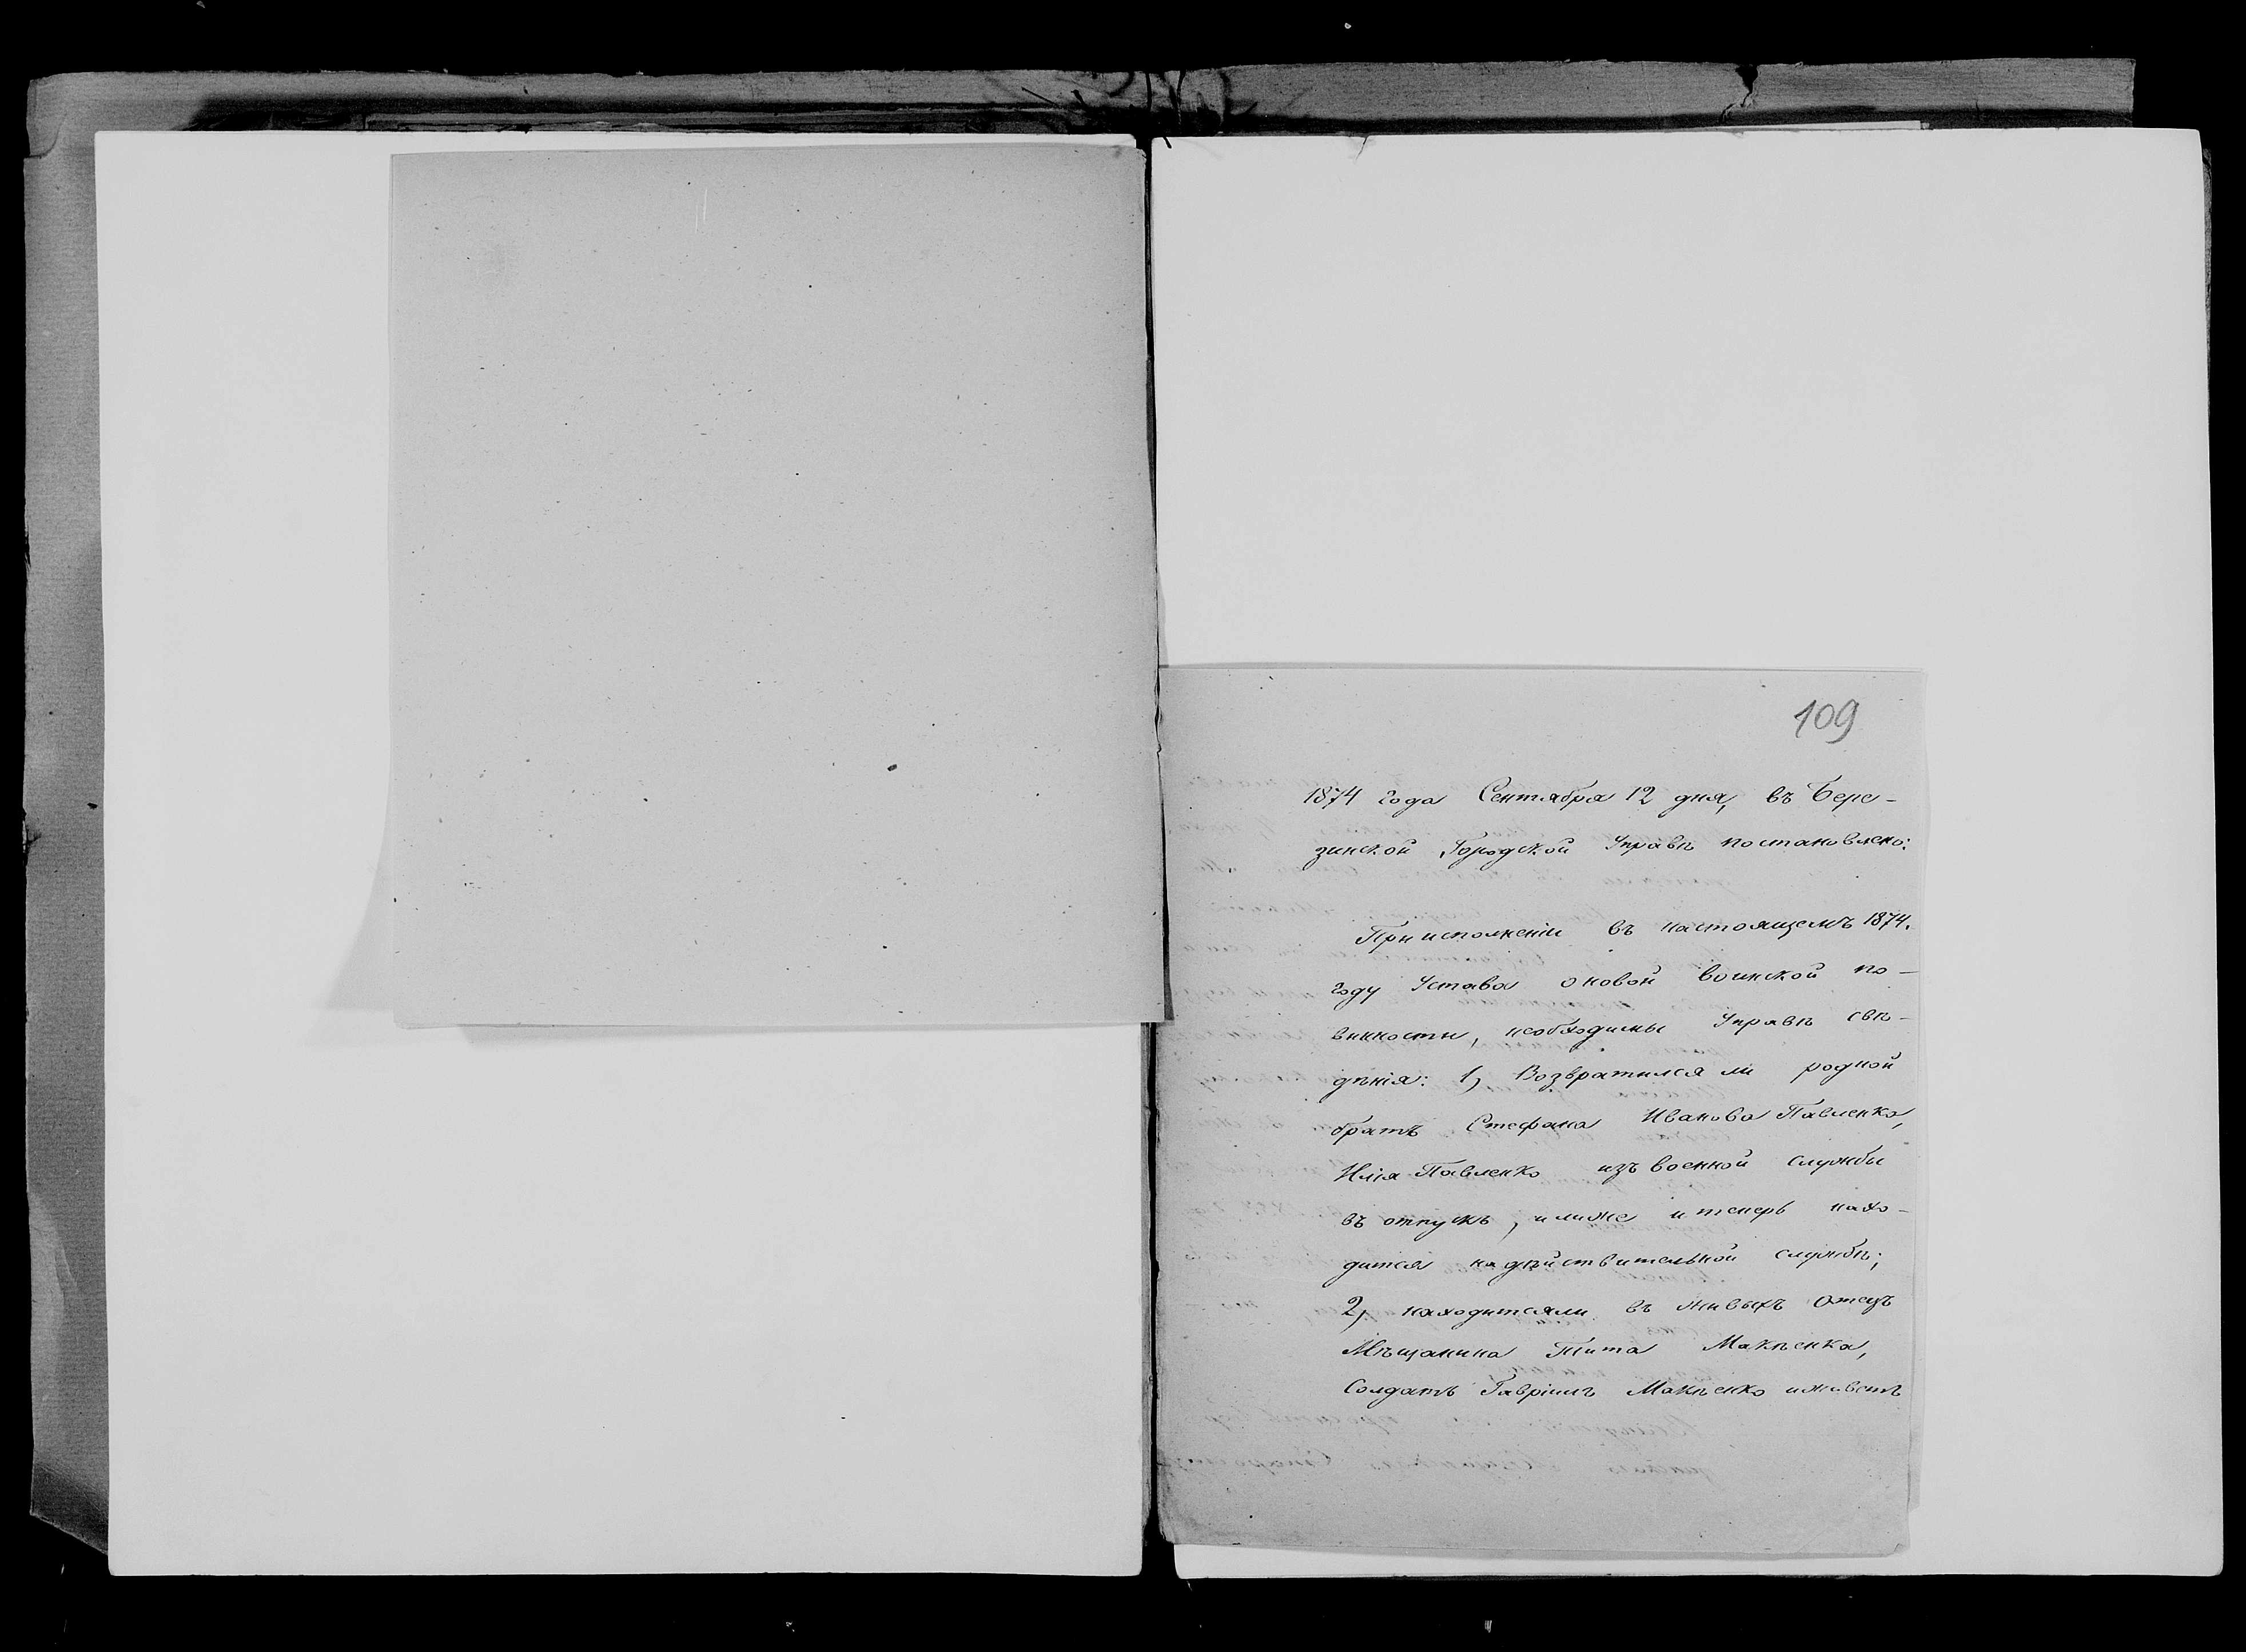 109
1874 года Сентября 12 дня, въ Бере-
зинской Городской Управѣ постановлено:
При исполненіи въ настоящемъ 1874.
году Устава о новой воинской по-
винности, необходимы Управѣ свѣ-
дѣнія: 1) Возвратился ли родной
братъ Стефана Иванова Павленка,
Илія Павленко изъ военной службы
въ отпускъ, или же и теперь нахо-
дится на дѣйствительной службѣ;
2) находится ли въ живыхъ Отецъ
Мѣщанина Тита Макѣенка,
Солдатъ Гавріилъ Макѣенко и живетъ